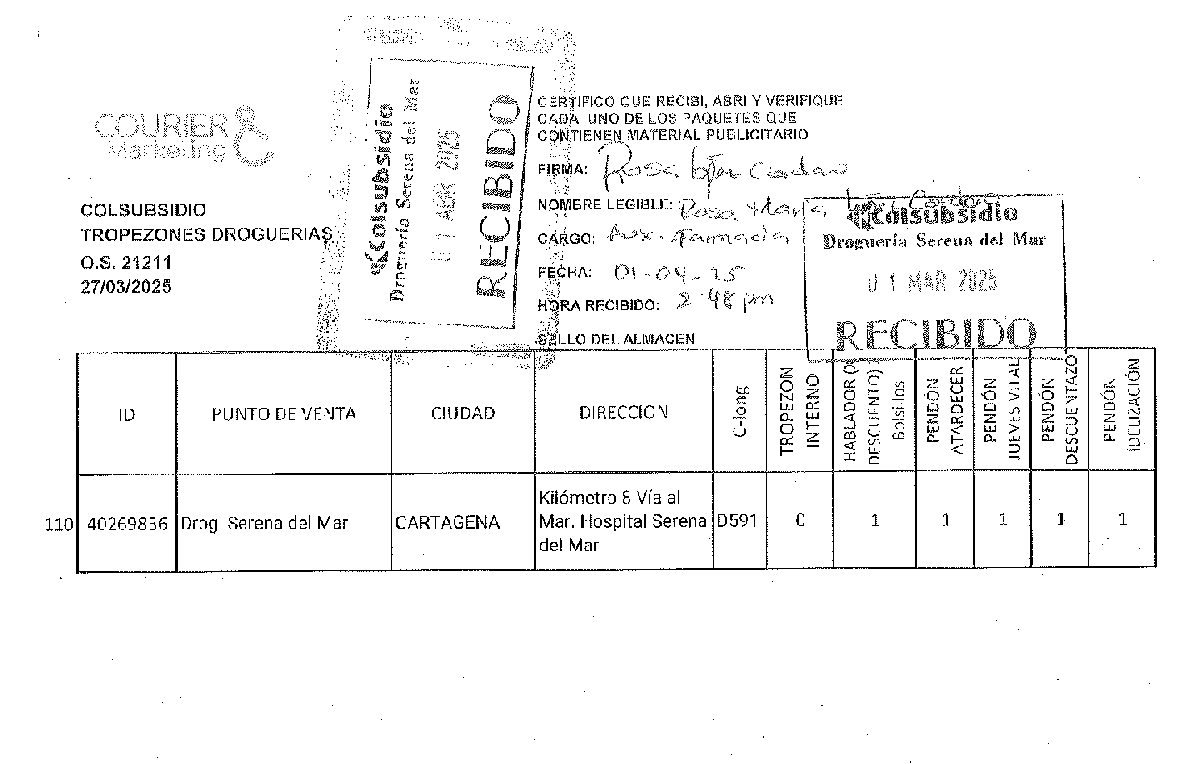 COURIER
Marketing
COLSUBSIDIO
TROPEZONES DROGUERIAS
O.S. 21211
27/03/2025
Colsubsidio
Droguería Serena del Mar
01 ABR 2025
RECIBIDO
CERTIFICO QUE RECIBI, ABRI Y VERIFIQUE
CADA UNO DE LOS PAQUETES QUE
CONTIENEN MATERIAL PUBLICITARIO
FIRMA: Rosa
NOMBRE LEGIBLE: Rosa Maria
CARGO: Aux. Farmacia
FECHA: 01-04-25
HORA RECIBIDO: 2:48 pm
SELLO DEL ALMACEN
Colsubsidio
Droguería Serena del Mar
01 MAR 2025
RECIBIDO
ID
PUNTO DE VENTA
CIUDAD
DIRECCION
C-long
TROPEZON
INTERNO
HABLADOR
DESCUENTO)
Bolsillos
PENDÓN
ATARDECER
PENDÓN
JUEVES VITAL
PENDÓN
DESCUENTAZO
PENDÓN
110
40269856
Drog. Serena del Mar
CARTAGENA
Kilómetro 8 Vía al
Mar. Hospital Serena
del Mar
D591
0
1
1
1
1
1